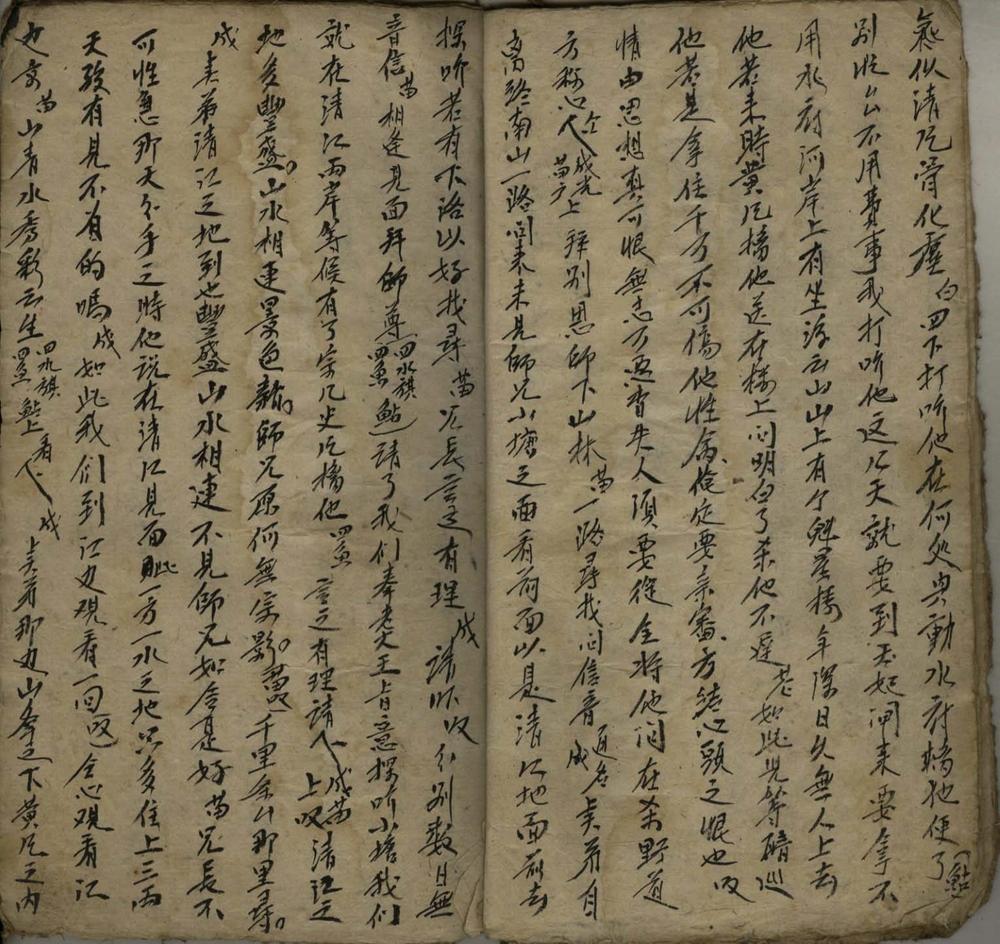 氣似清風骨化塵 白 四下打听他在何処興動水府擒他便了 鮎
別 不用費事我打听他这几天就要到 起 來要拿不
用水府河岸上有坐浮云山山上有个魁星樓年深日久無人上去
他若来時黄风擒他送在樓上问明白了杀他不遲 老 如此兄等醋巡
他若是拿住千万不可傷他性命 俺 定要亲審方結心頭之恨也 叹
情由思想真可恨無志万 人須要從全將他问在 野道
方称心 仝下 成 光 苗 上 拜别恩師下山林 苗 一路尋找问信音 通名 成 吴 若自
离終南山一路问来未見師兄小塘之面看前面以是清江地面前去
探听若有下洛以好找尋 苗 兄長言之有理 成 請 叹 分别数日無
音信 苗 相逢見面拜師尊 四水旗 四魚 鮎 請了我们奉老大王旨意探听小塘我们
就在清江两岸等候有了宗几史风擒他 四魚 言之有理請 下 成苗 上叹 清江之
地多豐盛 山水相連景色新 師兄原何無宗影 千里 那里尋
成 吴弟清江之地到也豐盛山水相連不見師兄如 是好 苗 兄長不
可性急那天分手之時他説在清江見面 一方一水之地只多住上三两
天 有見不有的嗎 成 如此我们到江边观看一回 叹 仝心观看江
边景 苗 山青水秀彩云生 四水旗 四魚 鮎上 看 下 成 吴弟那边山峯之下黄风之内